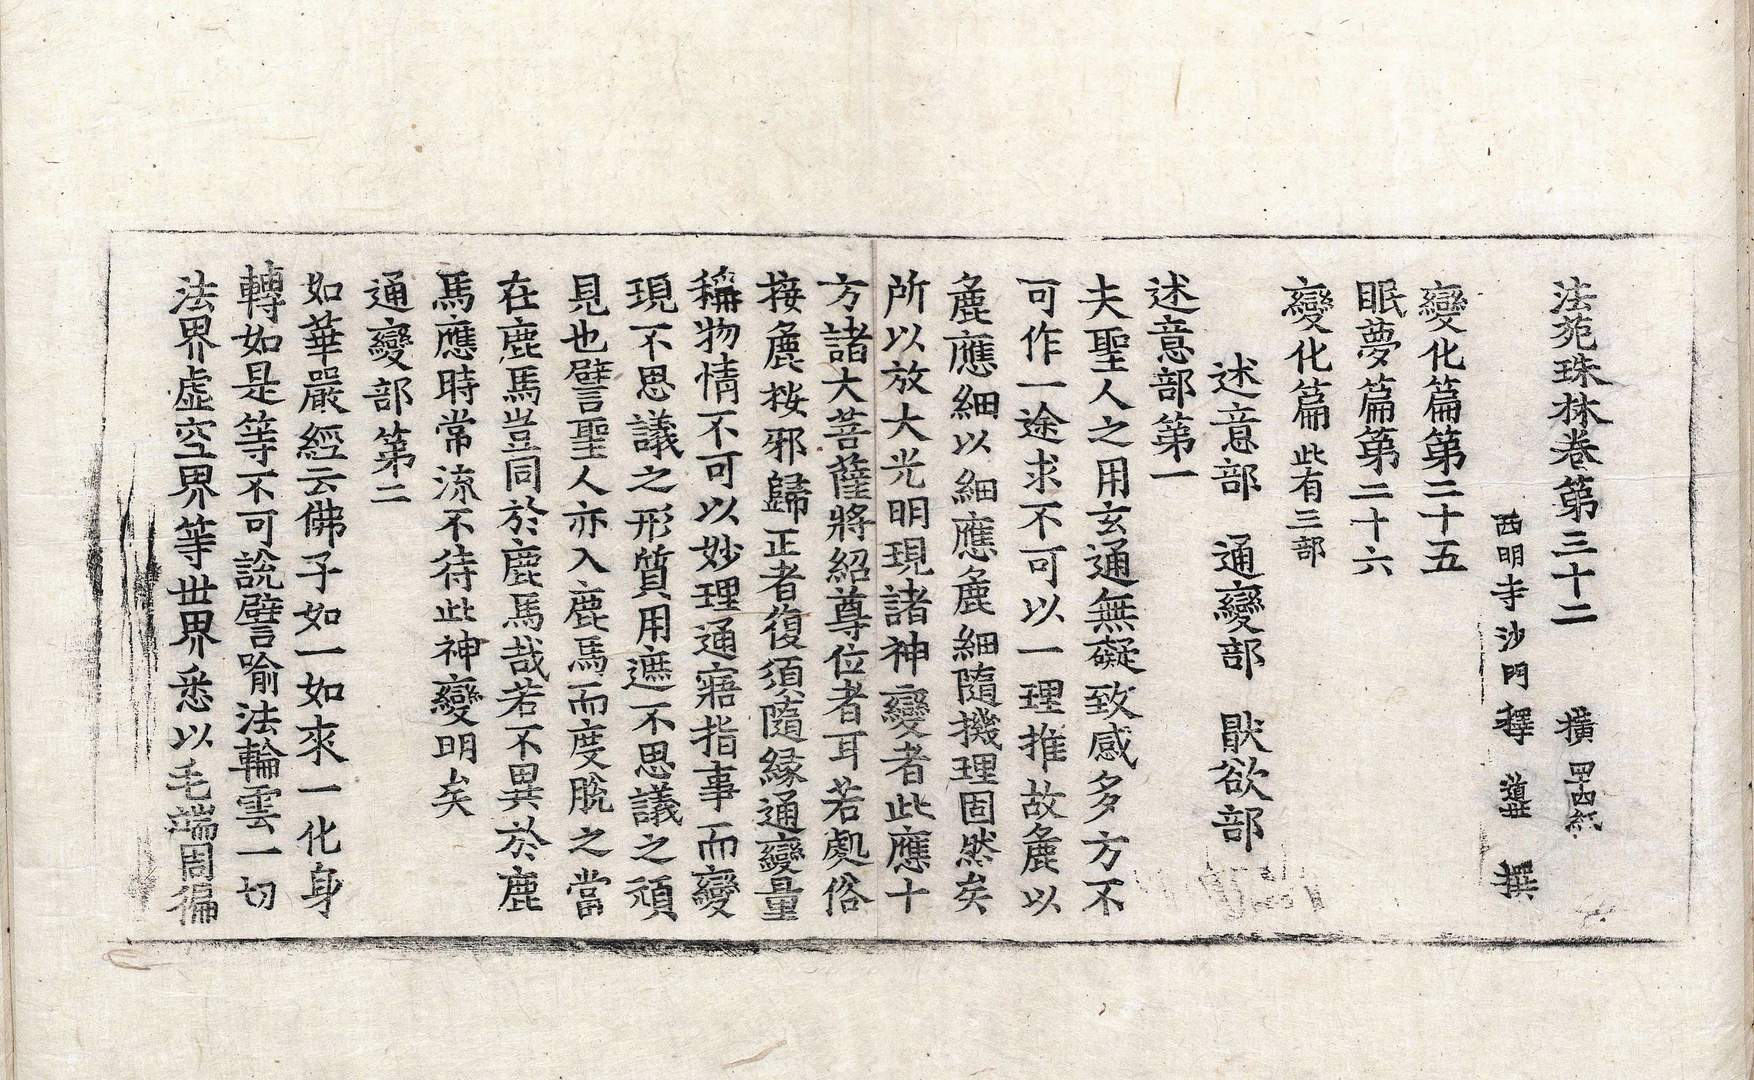 法苑珠林卷第三十二 橫 四十四紙
西明寺沙門釋 道世 撰
變化篇第二十五
眠夢篇第二十六
變化篇 此有三部
述意部 通變部 猒欲部
述意部第一
夫聖人之用玄通無礙致感多方不
可作一途求不可以一理推故麁以
麁應細以細應麁細隨機理固然矣
所以放大光明現諸神變者此應十
方諸大菩薩將紹尊位者耳若處俗
接麁桉邪歸正者復須隨緣通變量
稱物情不可以妙理通寤指事而變
現不思議之形質用遮不思議之頑
見也譬聖人亦入鹿馬而度脫之當
在鹿馬豈同於鹿馬哉若不異於鹿
馬應時常流不待此神變明矣
通變部第二
如華嚴經云佛子如一如來一化身
轉如是等不可說譬喻法輪雲一切
法界虛空界等世界悉以毛端周徧